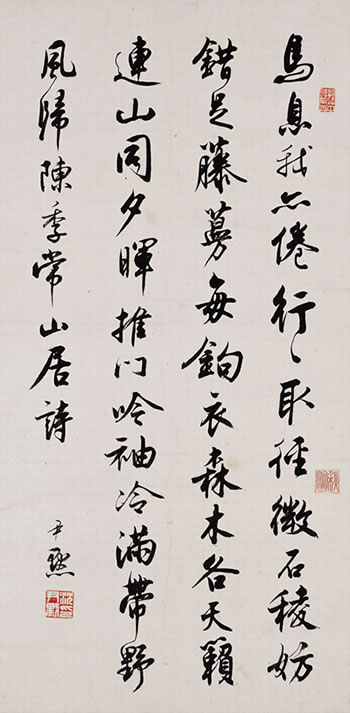 鳥息我亦倦行〻取徑微石稜妨
錯足藤蔓每鉤衣森木各天籟
連山同夕暉推門吟袖冷滿帶野
風歸陳季常山居詩
尹默